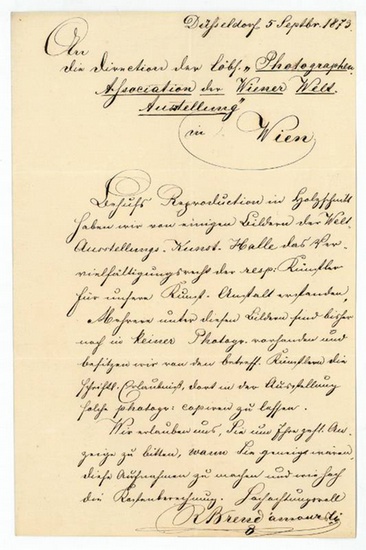 Düsseldorf 5 Septbr. 1873.
An
die Direction der löbl. „Photographen
Association der Wiener Welt-
Ausstellung"
in
Wien
Behufs Reproduction in Holzschnitt
haben wir von einigen Bildern der Welt-
Ausstellungs-Kunst-Halle das Ver-
vielfältigungsrecht der resp: Künstler
für unsere Kunst-Anstalt erstanden.
Mehrere unter diesen Bildern sind bisher
noch in keiner Photogr. vorhanden und
besitzen wir von den betreff. Künstlern die
schriftl. Erlaubniß, dort in der Ausstellung
solche photogr: copiren zu lassen.
Wir erlauben uns, Sie um Ihre gefl. An-
zeige zu bitten, wann Sie geneigt wären,
diese Aufnahmen zu machen und wie hoch
die Kostenberechnung. Hochachtungsvoll
R. Brend'amour